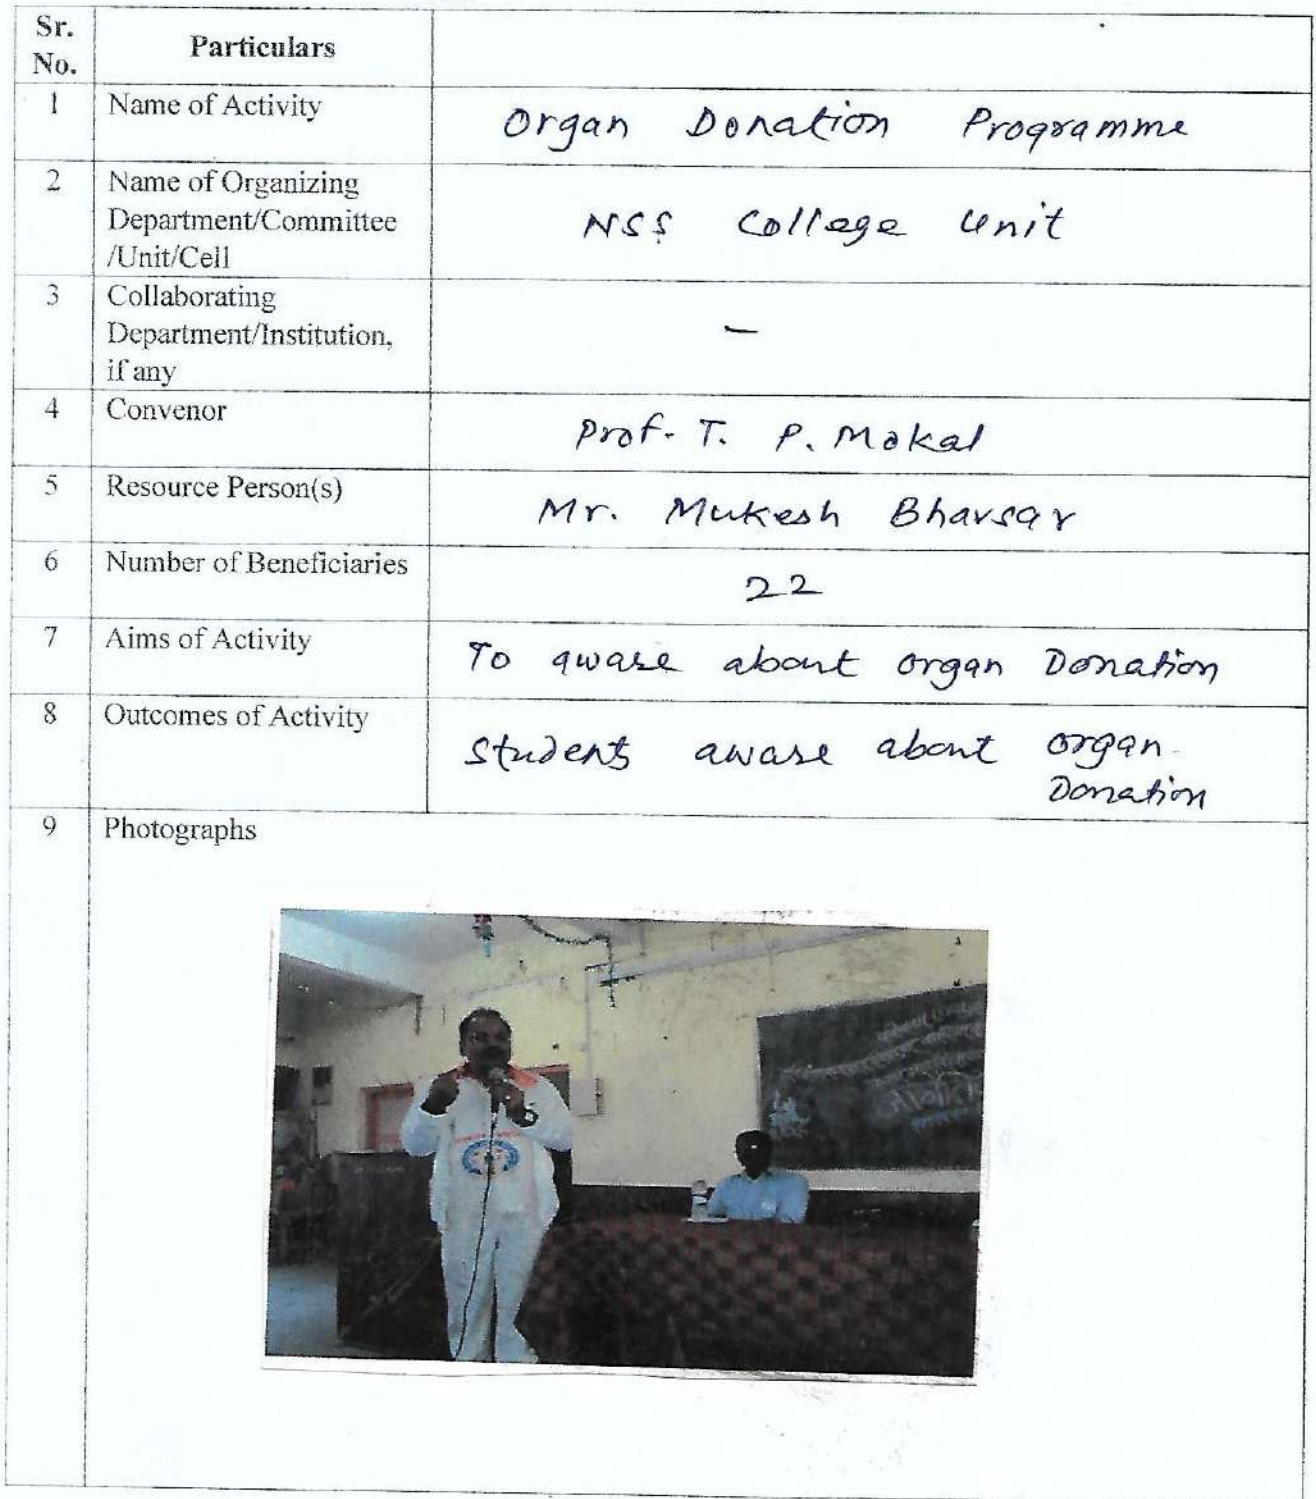 Sr.
No.
Particulars
1
Name of Activity
Organ Donation Programme
2
Name of Organizing
Department/Committee
/Unit/Cell
NSS College Unit
3
Collaborating
Department/Institution,
if any
-
4
Convenor
Prof. T. P. Mokal
5
Resource Person(s)
Mr. Mukesh Bhavsar
6
Number of Beneficiaries
22
7
Aims of Activity
To aware about organ Donation
8
Outcomes of Activity
Students aware about organ
Donation
9
Photographs